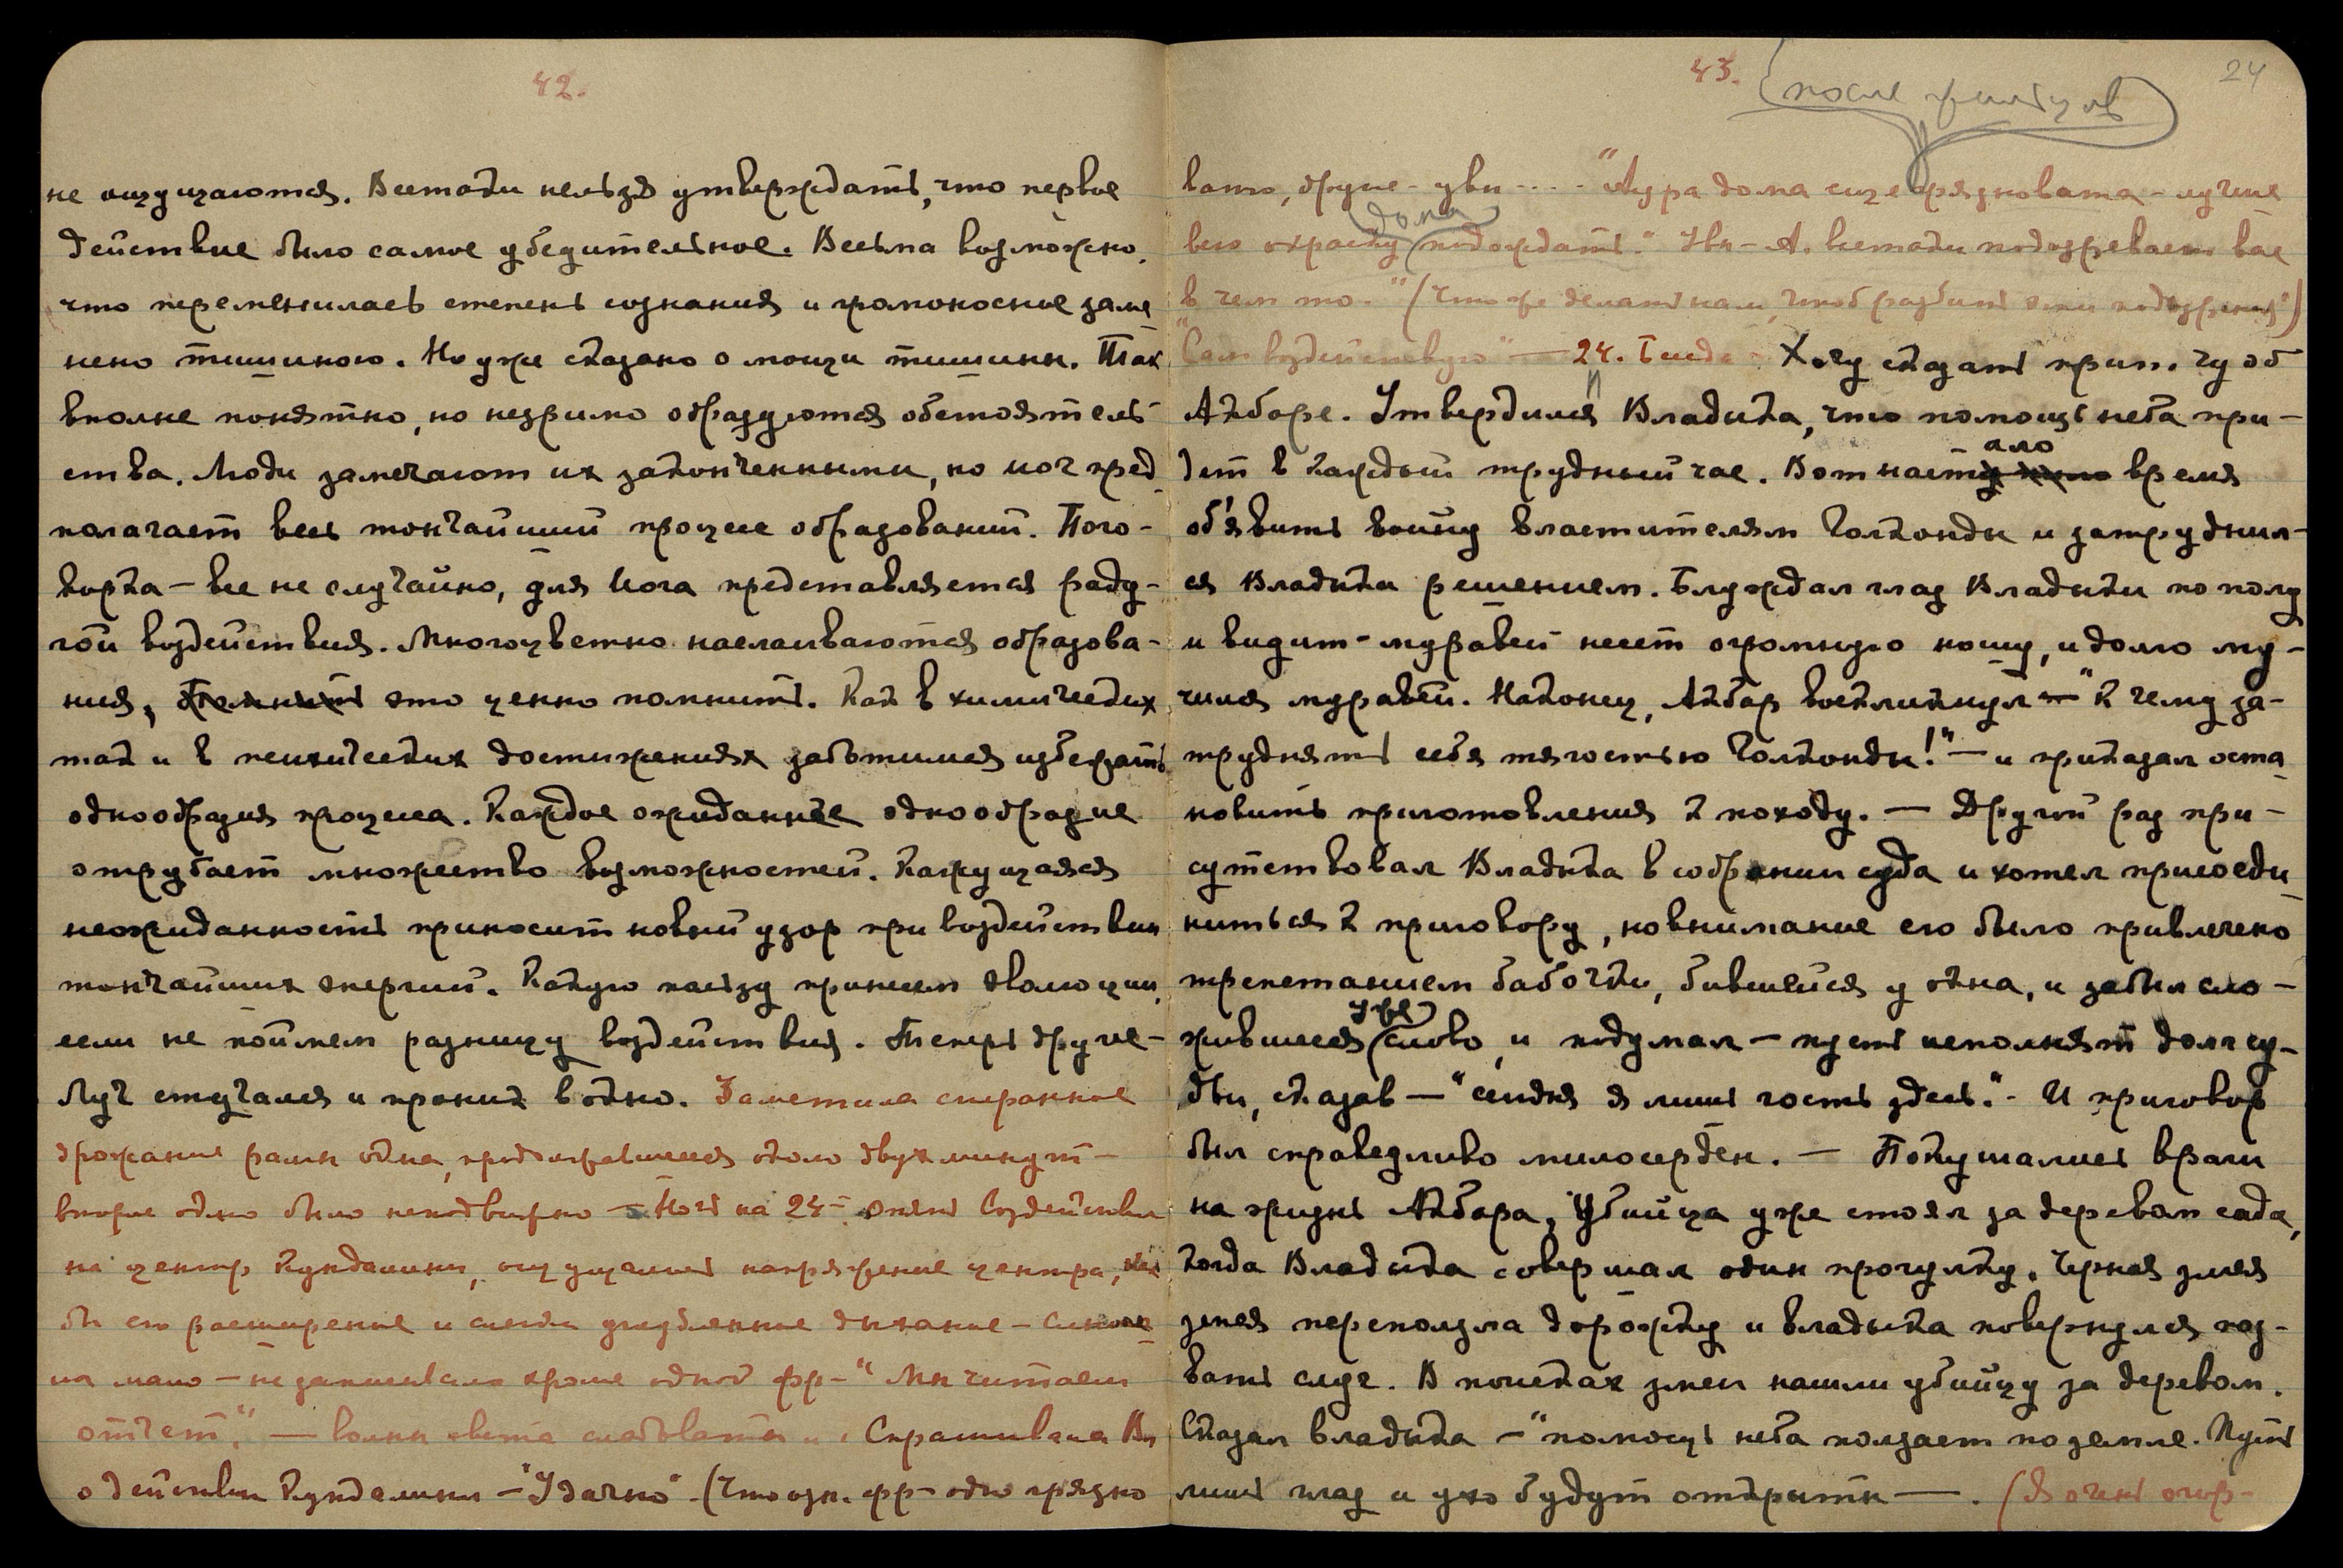 42.
не ощущаются. Всетаки нельзя утверждать, что первое
действие было самое убедительное. Весьма возможно,
что переменилась степень сознания и громоносное заме
нено тишиною. Но уже сказано о мощи тишины. Так
вполне понятно, но незримо образуются обстоятель-
ства. Люди замечают их законченными, но иог пред
полагает весь тончайший процесс образований. Пого-
ворка – все не случайно, для Иога представляется раду-
гой воздействия. Многоцветно наслаиваются образова-
ния, это ценно помнить. Как в химических
так и в психических достижениях заботимся избежать
однообразия процесса. Каждое ожиданное однообразие
отрубает множество возможностей. Кажущаяся
неожиданность приносит новый узор при воздействии
тончайших энергий. Какую пользу принесем эволюции,
если не поймем разницу воздействия. Теперь другое –
Луч стучался и проник в окно. Заметила странное
дрожание рамы окна, продолжавшееся около двух минут –
второе окно было неподвижно – Ночь на 24 – опять воздействие
на центр Кундалини, ощущались напряжение центра, как
бы его расширение и слегка углубленное дыхание –
мало – не записывала кроме одной фр – "Мы читаем
отчет." – волны света Спрашивала Вл
о действии Кундалини – "Удачно". (Что озн. фр – окно грязно
43. (после фиитузов) 24
вато, другое – увы ... "Аура дома еще грязновата – лучше
дома
всю окраску подождать." Увы – А. всетаки подозревает вас
в чем то." (Что же делать нам, чтоб разбить эти подозрения")
"Сам воздействую" – 24. Хочу сказать притчу об
Акбаре. Утвердился Владыка, что помощь неба при-
дет в каждый трудный час. Вот настало время
об'явить войну властителям Голконды и затруднил-
ся Владыка решением. Блуждал глаз Владыки по полу
и видит – муравей несет огромную ношу, и долго му-
чился муравей. Наконец, Акбар воскликнул – "К чему за-
труднять себя тягостью Голконды!" – и приказал оста
новить приготовления к походу. – Другой раз при-
сутствовал Владыка в собрании суда и хотел присоеди
ниться к приговору, но внимание его было привлечено
трепетанием бабочки, бившейся у окна, и забыл сло-
уже
жившееся слово, и подумал – пусть исполнят долг су-
дьи, сказав – "сегодня я лишь гость здесь". – И приговор
был справедливо милосерден. – Покушались враги
на жизнь Акбара, Убийца уже стоял за деревом сада,
когда Владыка совершал один прогулку. Черная змея
змея переползла дорожку и владыка повернулся поз-
вать слуг. В поисках змеи нашли убийцу за деревом.
Сказал владыка – "помощь неба ползает по земле. Пусть
лишь глаз и ухо будут открыты – . (Я очень огор-